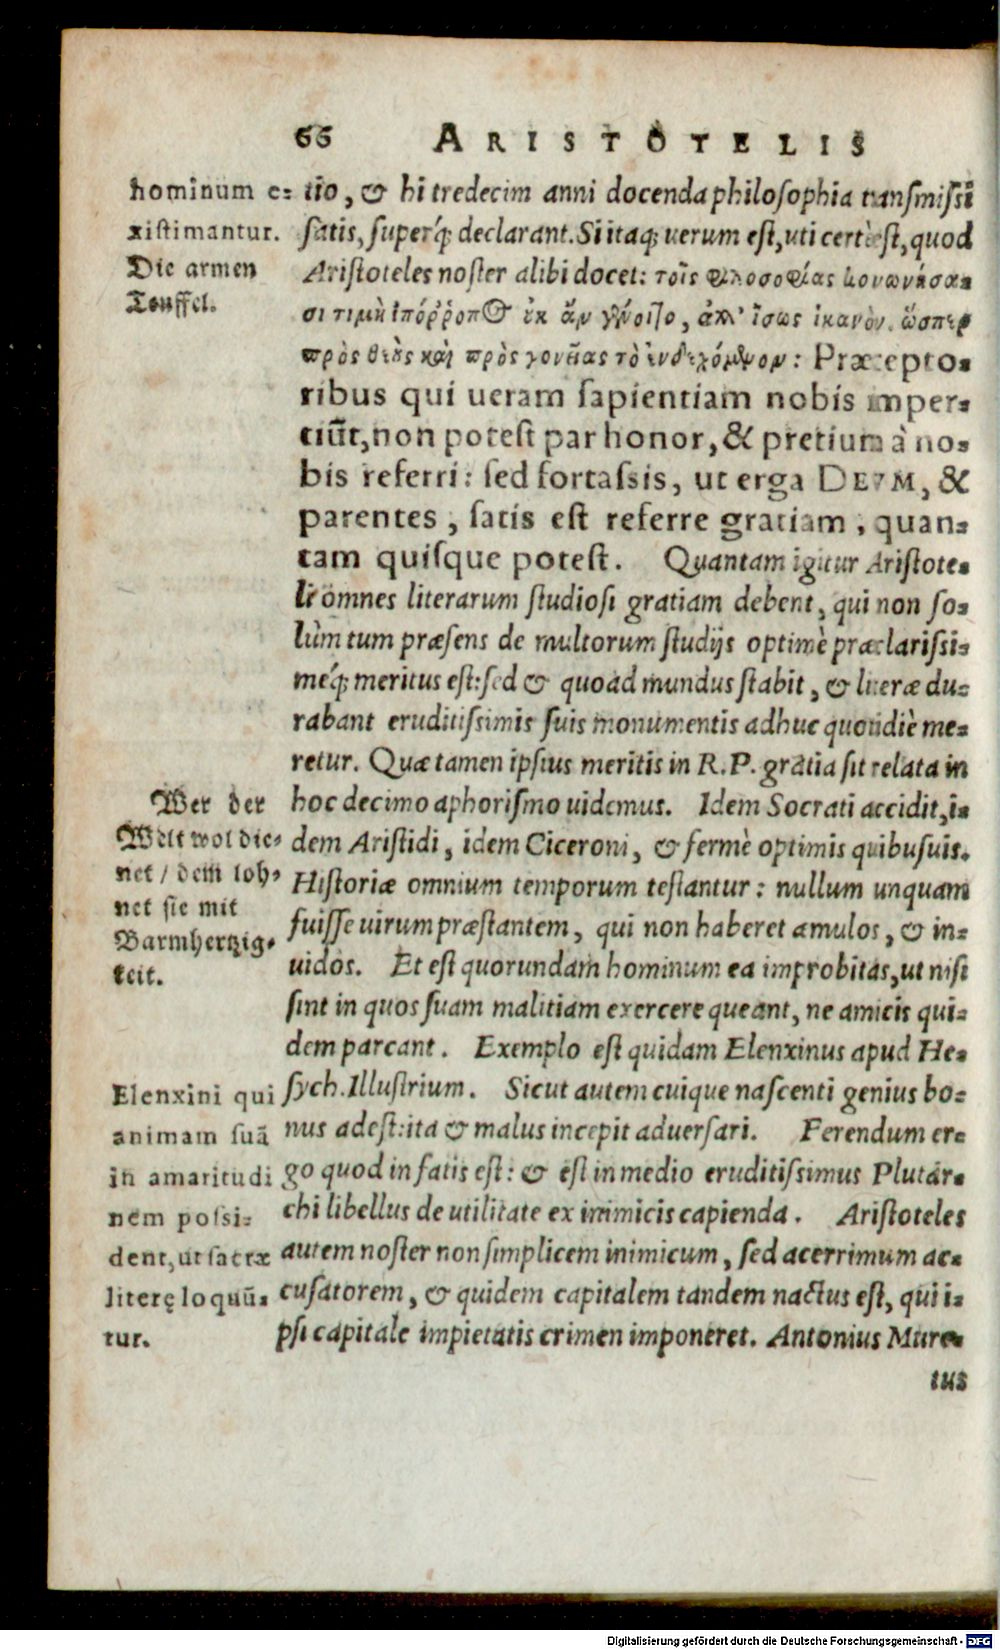 66 ARISTOTELIS
hominum e-
xistimantur.
Die armen
Teuffel.
tio, & hi tredecim anni docenda philosophia transmissi
satis, superq́; declarant. Si itaq; uerum est, uti certè est, quod
Aristoteles noster alibi docet: τοῖς φιλοσοφίας κοινωνήσα-
σι τιμὴ ἰσόῤῥοπος ἐκ ἂν γένοιτο, ἀλλ' ἴσως ἱκανὸν, ὥσπερ
πρὸς θεὸς καὶ πρὸς γονῆας τὸ ἐνδεχόμενον: Præcepto-
ribus qui ueram sapientiam nobis imper-
tiūt, non potest par honor, & pretium à no-
bis referri: sed fortassis, ut erga DEVM, &
parentes, satis est referre gratiam, quan-
tam quisque potest. Quantam igitur Aristote-
li omnes literarum studiosi gratiam debent, qui non so-
lùm tum præsens de multorum studijs optimè præclarissi-
méq; meritus est: sed & quoad mundus stabit, & literæ du-
rabant eruditissimis suis monumentis adhuc quotidiè me-
retur. Quæ tamen ipsius meritis in R.P. gratia sit relata in
hoc decimo aphorismo uidemus. Idem Socrati accidit, i-
dem Aristidi, idem Ciceroni, & fermè optimis quibusuis.
Historiæ omnium temporum testantur: nullum unquam
fuisse uirum præstantem, qui non haberet æmulos, & in-
uidos. Et est quorundam hominum ea improbitas, ut nisi
sint in quos suam malitiam exercere queant, ne amicis qui-
dem parcant. Exemplo est quidam Elenxinus apud He-
sych. Illustrium. Sicut autem cuique nascenti genius bo-
nus adest: ita & malus incepit aduersari. Ferendum er-
go quod in fatis est: & est in medio eruditissimus Plutar-
chi libellus de utilitate ex inimicis capienda. Aristoteles
autem noster non simplicem inimicum, sed acerrimum ac-
cusatorem, & quidem capitalem tandem nactus est, qui i-
psi capitale impietatis crimen imponeret. Antonius Mure-
tus
Wer der
Welt wol die-
net / dem loh-
net sie mit
Barmhertzig-
keit.
Elenxini qui
animam suā
in amaritudi
nem possi-
dent, ut sacræ
literę loquū-
tur.
Digitalisierung gefördert durch die Deutsche Forschungsgemeinschaft - DFG